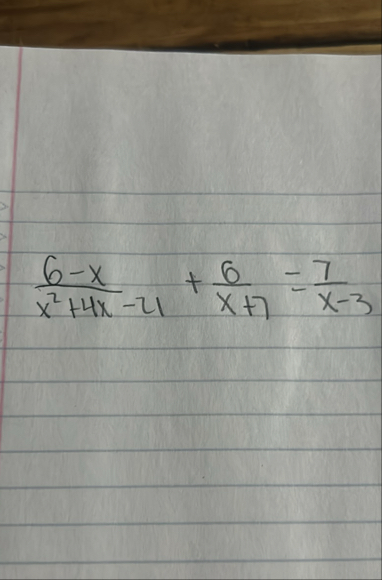 \frac{6-x}{x^2+4x-21} + \frac{6}{x+7} = \frac{7}{x-3}